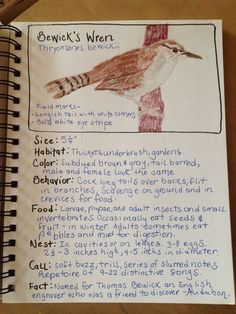 BEWICK'S WREN
Thryomanes bewickii
Field marks-
- Longish tail with white corners
- Bold white eye stripe
Size: 5¼"
Habitat: Thickets, underbrush, gardens.
Color: Subdued brown & gray, tail barred,
male and female look the same
Behavior: Cock long tails over backs, flit
in branches, Scavenge on ground and in
crevices for food.
Food: Larvae, pupae, and adult insects and small
invertebrates. Occasionally eat seeds &
fruit - in winter. Adults sometimes eat
pebbles and mud for digestion.
Nest: In cavities or on ledges. 3-8 eggs.
in diameter.
Call: Soft buzz, trill, series of slurred notes
Repetoire of 9-22 distinctive songs.
Fact: Named for Thomas Bewick an English
engraver who was a friend to discover - Audubon.